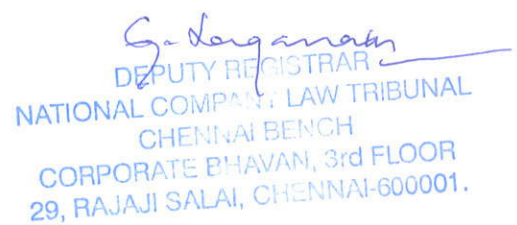 DEPUTY REGISTRAR
NATIONAL COMPANY LAW TRIBUNAL
CHENNAI BENCH
CORPORATE BHAVAN, 3rd FLOOR
29, RAJAJI SALAI, CHENNAI-600001.